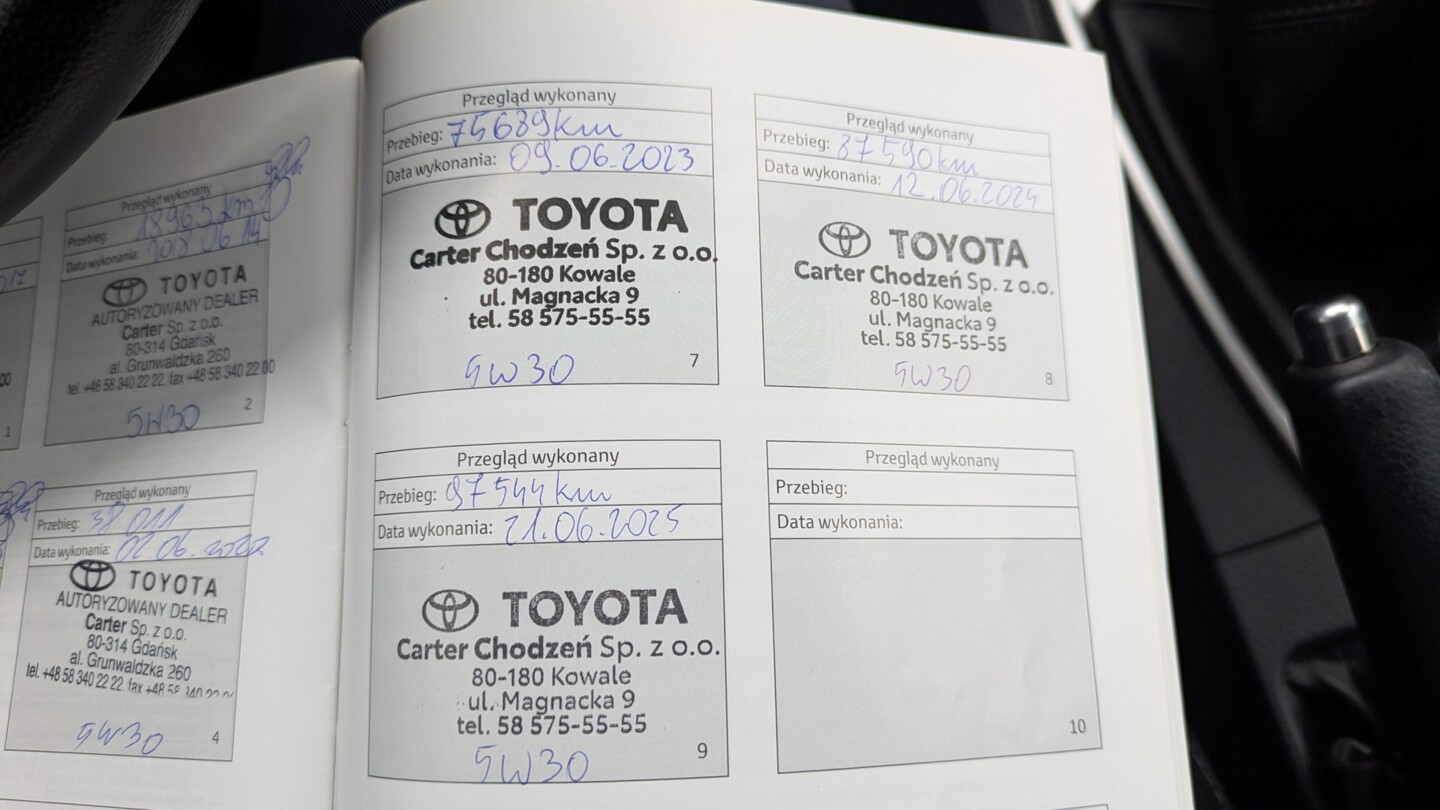 Przegląd wykonany
Przebieg: 18963 km
Data wykonania: 2018 06 14
TOYOTA
AUTORYZOWANY DEALER
Carter Sp. z o.o.
80-314 Gdańsk
al. Grunwaldzka 260
tel. +48 58 340 22 22, fax +48 58 340 22 00
5W30
2
1
Przegląd wykonany
Przebieg: 38 011
Data wykonania: 02.06.
TOYOTA
AUTORYZOWANY DEALER
Carter Sp. z o.o.
80-314 Gdańsk
al. Grunwaldzka 260
tel. +48 58 340 22 22, fax +48 58 340 22
5W30
4
Przegląd wykonany
Przebieg: 75689km
Data wykonania: 09.06.2023
TOYOTA
Carter Chodzeń Sp. z o.o.
80-180 Kowale
ul. Magnacka 9
tel. 58 575-55-55
5W30
7
Przegląd wykonany
Przebieg: 87590km
Data wykonania: 12.06.2024
TOYOTA
Carter Chodzeń Sp. z o.o.
80-180 Kowale
ul. Magnacka 9
tel. 58 575-55-55
5W30
8
Przegląd wykonany
Przebieg: 97544km
Data wykonania: 21.06.2025
TOYOTA
Carter Chodzeń Sp. z o.o.
80-180 Kowale
ul. Magnacka 9
tel. 58 575-55-55
5W30
9
Przegląd wykonany
Przebieg:
Data wykonania:
10